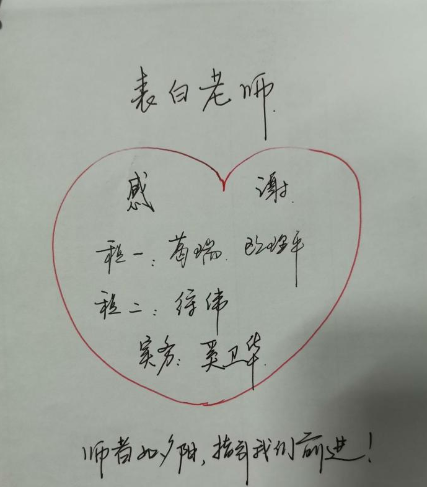 表白老师
感 谢
税一：葛瑞
税二：徐伟
实务：奚卫华
师者如夕阳，指引我们前进！